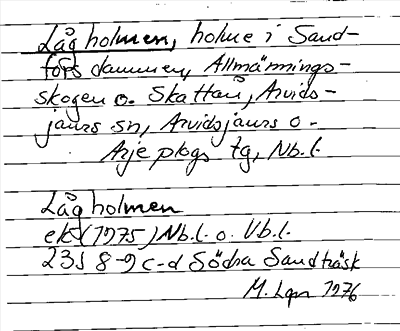 Lågholmen, holme i Sand-
forsdammen, Allmännings-
skogen o. Skattån, Arvids-
jaurs sn, Arvidsjaurs o.
Arjeplogs tg, Nb.l.
Lågholmen
ek (1975) Nb.l. o. Vb.l.
23J 8-9 c-d Södra Sandträsk
M. Lgn 1976